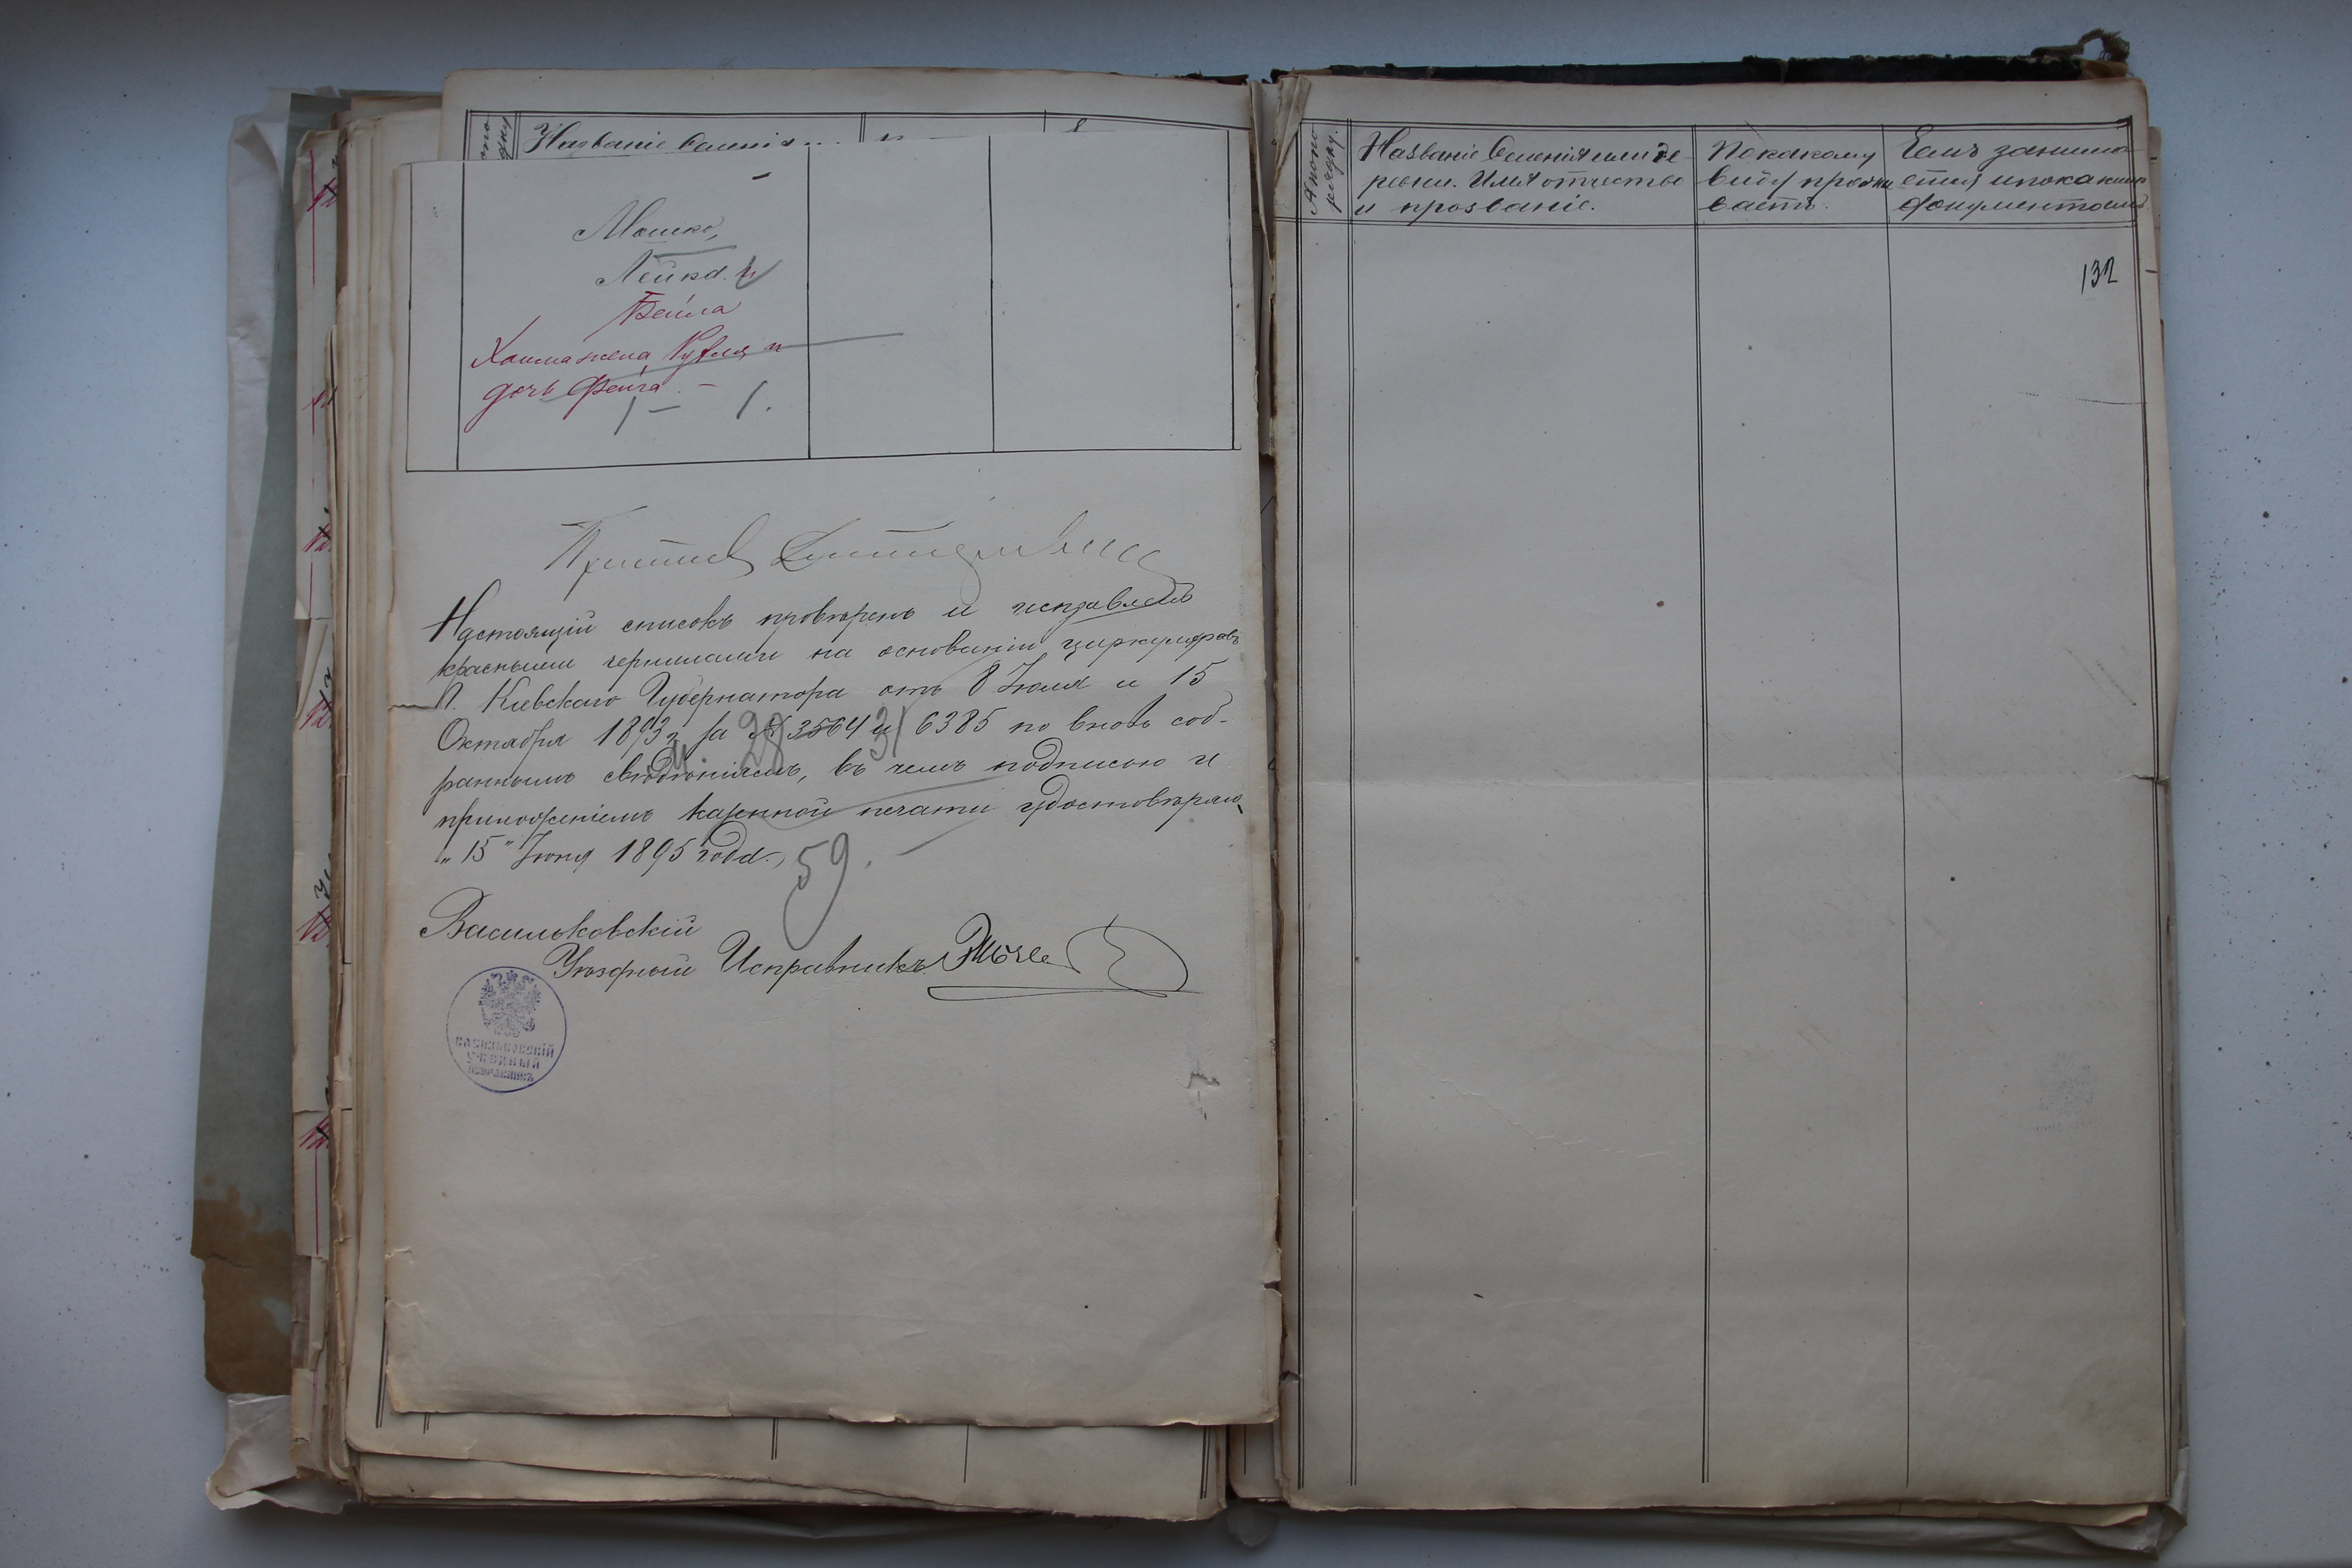 Названіе Селенія
Мошко,
Лейка. и
Бейла
Хаима жена Рухля и
дочь Фейга. –
1 – 1.
Приставъ
Настоящій списокъ провѣренъ и исправленъ
красными чернилами на основаніи циркуляровъ
Г. Кіевскаго Губернатора отъ 8 Іюля и 15
Октября 1893 г за № 3564 и 6385 по вновь соб-
раннымъ свѣдѣніямъ, въ чемъ подписью и
приложеніемъ казенной печати удостовѣряю
„15" Іюня 1895 года.
28 31
59.
Васильковскій
Уѣздный Исправникъ
ВАСИЛЬКОВСКІЙ
УѢЗДНЫЙ
ИСПРАВНИКЪ
№ по по
рядку.
Названіе Селенія или де-
ревни. Имя отчество
и прозваніе.
По какому
виду прожи
ваетъ.
Чемъ занима
ется и по какимъ
документамъ.
132